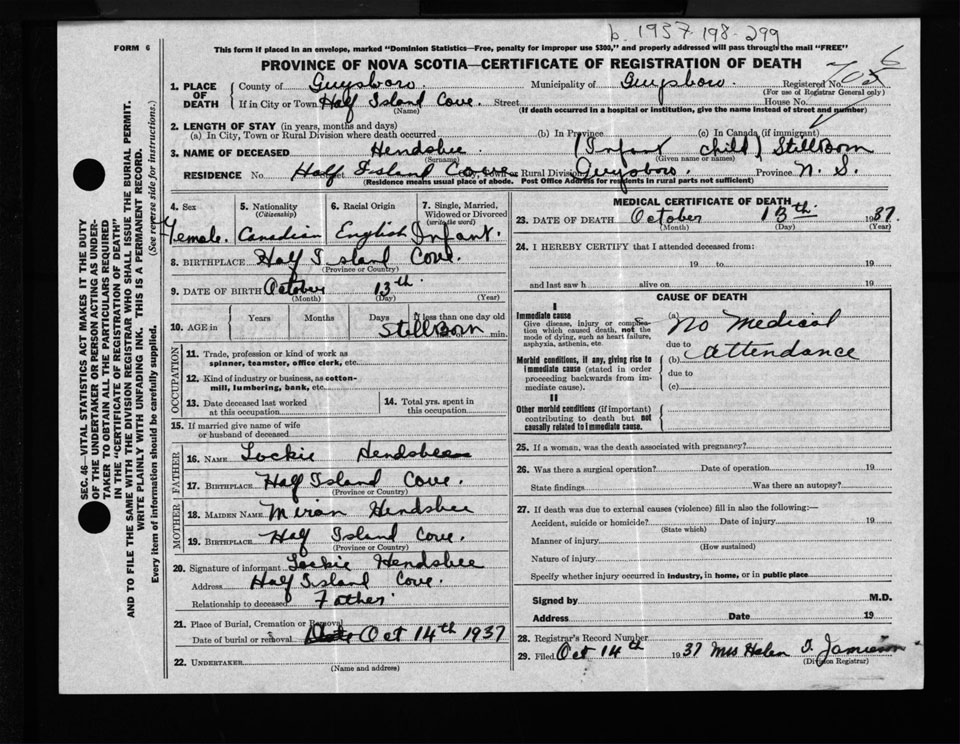 b. 1937-198-299
FORM 6
This form if placed in an envelope, marked "Dominion Statistics—Free, penalty for improper use $300," and properly addressed will pass through the mail "FREE"
PROVINCE OF NOVA SCOTIA—CERTIFICATE OF REGISTRATION OF DEATH
1. PLACE OF DEATH County of Guysboro. Municipality of Guysboro. Registered No.
(For use of Registrar General only)
If in City or Town Half Island Cove. Street House No.
(Name) (If death occurred in a hospital or institution, give the name instead of street and number)
2. LENGTH OF STAY (in years, months and days)
(a) In City, Town or Rural Division where death occurred (b) In Province (c) In Canada (if immigrant)
3. NAME OF DECEASED Hendsbee (Infant child) StillBorn
(Surname) (Given name or names)
RESIDENCE No. Half Island Cove or Rural Division Guysboro. Province N. S.
(Residence means usual place of abode. Post Office Address for residents in rural parts not sufficient)
4. Sex 5. Nationality 6. Racial Origin 7. Single, Married, Widowed or Divorced
(Citizenship) (write the word)
Female. Canadian English Infant.
8. BIRTHPLACE Half Island Cove.
(Province or Country)
9. DATE OF BIRTH October 13th.
(Month) (Day) (Year)
10. AGE in Years Months Days If less than one day old
StillBorn min.
OCCUPATION
11. Trade, profession or kind of work as spinner, teamster, office clerk, etc.
12. Kind of industry or business, as cotton-mill, lumbering, bank, etc.
13. Date deceased last worked at this occupation
14. Total yrs. spent in this occupation
15. If married give name of wife or husband of deceased
FATHER
16. NAME Lockie Hendsbee
17. BIRTHPLACE Half Island Cove.
(Province or Country)
MOTHER
18. MAIDEN NAME Hendsbee
19. BIRTHPLACE Half Island Cove.
(Province or Country)
20. Signature of informant Lockie Hendsbee
Address Half Island Cove.
Relationship to deceased Father
21. Place of Burial, Cremation or Removal
Date of burial or removal Oct 14th 1937
22. UNDERTAKER
(Name and address)
MEDICAL CERTIFICATE OF DEATH
23. DATE OF DEATH October 13th 1937.
(Month) (Day) (Year)
24. I HEREBY CERTIFY that I attended deceased from:
19 to 19
and last saw h alive on 19
CAUSE OF DEATH
I
Immediate cause
Give disease, injury or complication which caused death, not the mode of dying, such as heart failure, asphyxia, asthenia, etc.
(a) No Medical
due to
Morbid conditions, if any, giving rise to immediate cause (stated in order proceeding backwards from immediate cause).
(b) Attendance
due to
(c)
II
Other morbid conditions (if important) contributing to death but not causally related to immediate cause.
25. If a woman, was the death associated with pregnancy?
26. Was there a surgical operation? Date of operation 19
State findings Was there an autopsy?
27. If death was due to external causes (violence) fill in also the following:—
Accident, suicide or homicide? Date of injury 19
(State which)
Manner of injury
(How sustained)
Nature of injury
Specify whether injury occurred in industry, in home, or in public place
Signed by M.D.
Address Date 19
28. Registrar's Record Number
29. Filed Oct 14th 1937 Mrs Helen Jamieson
(Division Registrar)
SEC. 46—VITAL STATISTICS ACT MAKES IT THE DUTY
OF THE UNDERTAKER OR PERSON ACTING AS UNDER-
TAKER TO OBTAIN ALL THE PARTICULARS REQUIRED
IN THE "CERTIFICATE OF REGISTRATION OF DEATH"
AND TO FILE THE SAME WITH THE DIVISION REGISTRAR WHO SHALL ISSUE THE BURIAL PERMIT.
WRITE PLAINLY WITH UNFADING INK. THIS IS A PERMANENT RECORD.
Every item of information should be carefully supplied. (See reverse side for instructions.)